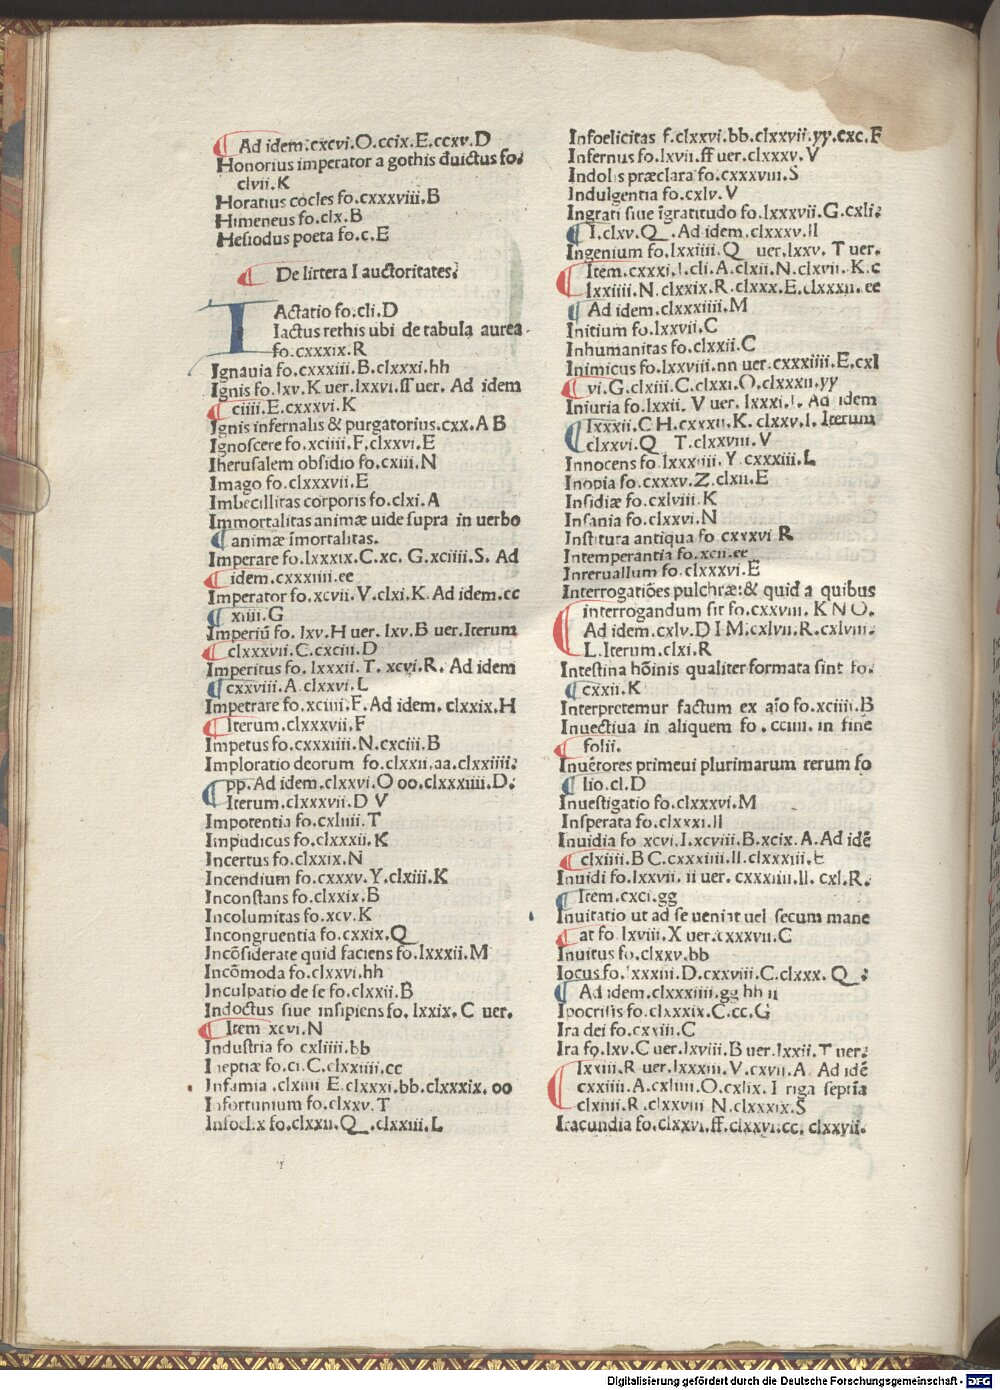 Ad idem.cxcvi.O.ccix.E.ccxv.D
Honorius imperator a gothis duictus fo.
clvii.K
Horatius cocles fo.cxxxviii.B
Himeneus fo.clx.B
Hesiodus poeta fo.c.E
De littera I auctoritates.
IActatio fo.cli.D
Iactus rethis ubi de tabula aurea
fo.cxxxix.R
Ignauia fo.cxxxiii.B.clxxxi.hh
Ignis fo.lxv.K uer.lxxvi.ff uer. Ad idem
ciiii.E.cxxxvi.K
Ignis infernalis & purgatorius.cxx.A B
Ignoscere fo.xciiii.F.clxxvi.E
Iherusalem obsidio fo.cxiii.N
Imago fo.clxxxvii.E
Imbecillitas corporis fo.clxi.A
Immortalitas animæ uide supra in uerbo
animæ īmortalitas.
Imperare fo.lxxxix.C.xc. G.xciiii.S. Ad
idem.cxxxiiii.ee
Imperator fo.xcvii.V.clxi.K.Ad idem.cc
xiiii.G
Imperiū fo.lxv.H uer.lxv.B uer.Iterum
clxxxvii.C.cxciii.D
Imperitus fo.lxxxii.T.xcvi.R. Ad idem
cxxviii.A.clxxvi.L
Impetrare fo.xciiii.F.Ad idem.clxxix.H
Iterum.clxxxvii.F
Impetus fo.cxxxiiii.N.cxciii.B
Imploratio deorum fo.clxxii.aa.clxxiiii.
pp.Ad idem.clxxvi.O oo.clxxxiiii.D.
Iterum.clxxxvii.D V
Impotentia fo.cxliiii.T
Impudicus fo.clxxxii.K
Incertus fo.clxxix.N
Incendium fo.cxxxv.Y.clxiii.K
Inconstans fo.clxxix.B
Incolumitas fo.xcv.K
Incongruentia fo.cxxix.Q
Incōsiderate quid faciens fo.lxxxii.M
Incōmoda fo.clxxvi.hh
Inculpatio de se fo.clxxii.B
Indoctus siue insipiens fo.lxxix.C uer.
Item xcvi.N
Industria fo cxliiii.bb
Ineptiæ fo.ci.C.clxxiiii.cc
Infamia .clxiiii E.clxxxi.bb.clxxxix.oo
Infortunium fo.clxxv.T
Infoelix fo.clxxii.Q.clxxiii.L
Infoelicitas f.clxxvi.bb.clxxvii.yy.cxc.F
Infernus fo.lxvii.ff uer.clxxxv.V
Indolis præclara fo.cxxxviii.S
Indulgentia fo.cxlv.V
Ingrati siue īgratitudo fo.lxxxvii.G.cxli.
I.clxv.Q.Ad idem.clxxxv.II
Ingenium fo.lxxiiii.Q uer.lxxv.T uer.
Item.cxxxi.I.cli.A.clxii.N.clxvii.K.c
lxxiiii.N.clxxix.R.clxxx.E.clxxxii.ee
Ad idem.clxxxiiii.M
Initium fo.lxxvii.C
Inhumanitas fo.clxxii.C
Inimicus fo.lxxviii.nn uer.cxxxiiii.E.cxl
vi.G.clxiii.C.clxxi.O.clxxxii.yy
Iniuria fo.lxxii. V uer.lxxxi.I. Ad idem
lxxxii.C H.cxxxii.K.clxxv.I.Iterum
clxxvi.Q T.clxxviii.V
Innocens fo.lxxxiiii.Y.cxxxiii.L
Inopia fo.cxxxv.Z.clxii.E
Insidiæ fo.cxlviii.K
Insania fo.clxxvi.N
Institura antiqua fo cxxxvi R
Intemperantia fo.xcii.ee
Interuallum fo.clxxxvi.E
Interrogatiōes pulchræ:& quid a quibus
interrogandum sit fo.cxxviii.K N O.
Ad idem.cxlv.D I M.cxlvii.R.cxlviii.
L.Iterum.clxi.R
Intestina hōinis qualiter formata sint fo.
cxxii.K
Interpretemur factum ex aīo fo.xciiii.B
Inuectiua in aliquem fo.cciiii.in fine
folii.
Inuētores primeui plurimarum rerum fo
lio.cl.D
Inuestigatio fo.clxxxvi.M
Insperata fo.clxxxi.II
Inuidia fo xcvi.I.xcviii.B.xcix.A.Ad idē
clxiiii.B C.cxxxiiii.II.clxxxiii.E
Inuidi fo.lxxvii.ii uer.cxxxiiii.II.cxl.R.
Item.cxci.gg
Inuitatio ut ad se ueniat uel secum mane
at fo.lxviii.X uer.cxxxvii.C
Inuitus fo.clxxv.bb
Iocus fo.lxxxiii.D.cxxviii.C.clxxx.Q.
Ad idem.clxxxiiii.gg hh ii
Ipocrisis fo.clxxxix.C.cc.G
Ira dei fo.cxviii.C
Ira fo.lxv.C uer.lxviii.B uer.lxxii.T uer.
lxxiii.R uer.lxxxiii.V.cxvii.A. Ad idē
cxxiiii.A.cxliiii.O.cxlix.I riga septīa
clxiiii.R.clxxviii N.clxxxix.S
Iracundia fo.clxxvi.ff.clxxvi.cc.clxxvii.
Digitalisierung gefördert durch die Deutsche Forschungsgemeinschaft - DFG